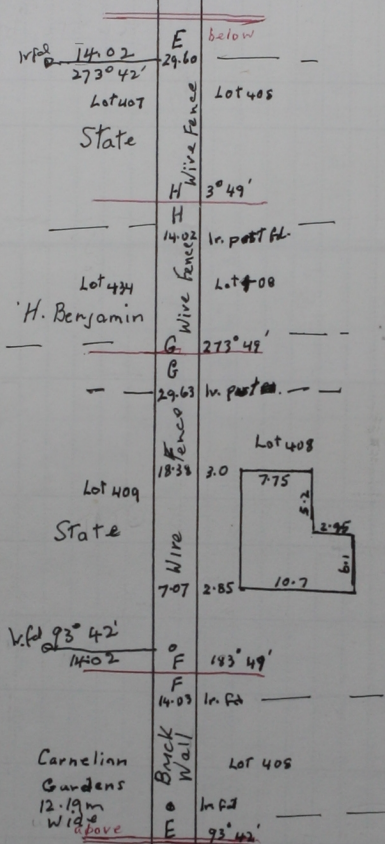 E below
Ir.fd 14.02 29.60
273° 42'
Lot 407 Lot 408
State
Wire Fence
H 3° 49'
H
14.02 Ir. post fd.
Lot 434 Lot 408
H. Benjamin
Wire Fence
G 273° 49'
G
29.63 Ir. post
Lot 408
18.38 3.0
7.75
5.2
2.95
6.1
10.7
Lot 409
State
Wire Fence
7.07 2.85
Ir.fd 93° 42'
14.02
F 183° 49'
F
14.03 Ir. fd
Brick Wall
Lot 408
Carnelian
Gardens
12.19m
Wide
Ir fd
above E 93° 42'